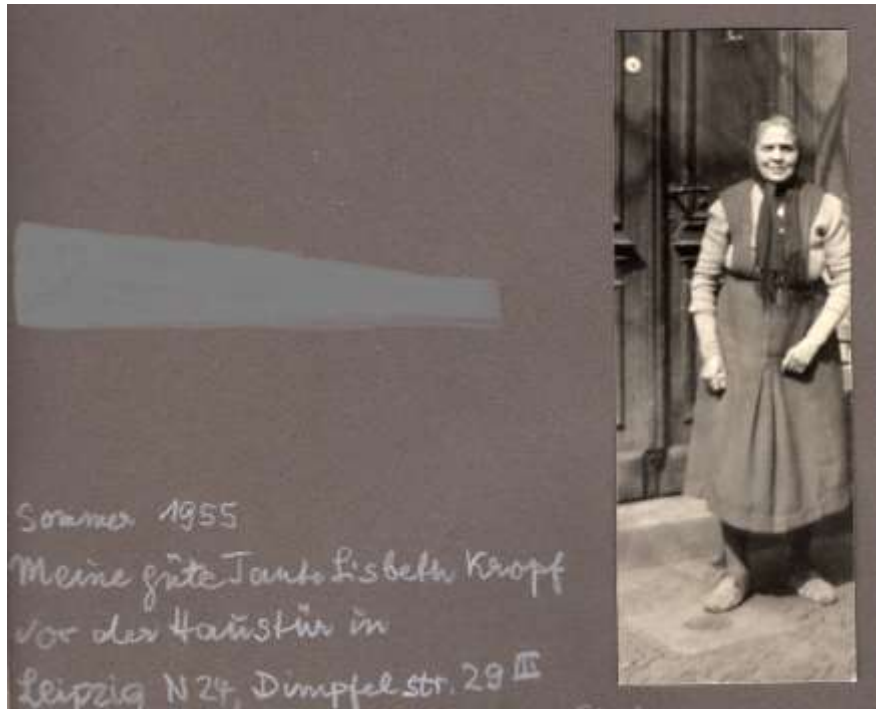 Sommer 1955
Meine gute Tante Lisbeth Kropf
vor der Haustür in
Leipzig N 24, Dimpfelstr. 29 III